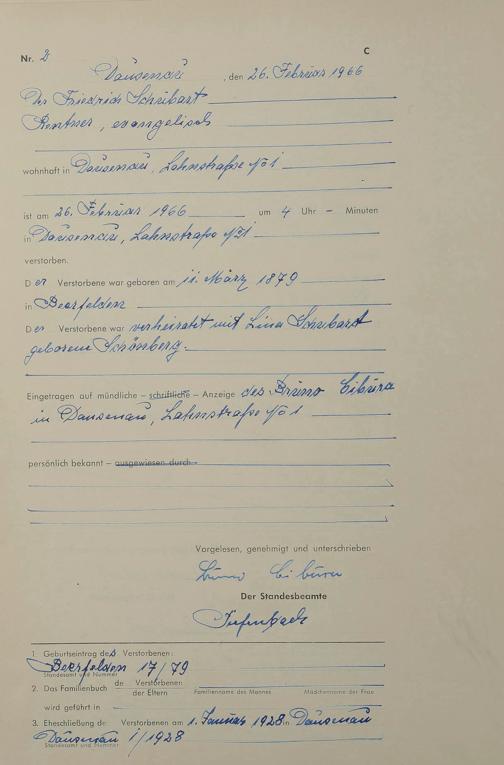 Nr. 2 C
Dausenau, den 26. Februar 1966
Der Friedrich Scheibart
Rentner, evangelisch
wohnhaft in Dausenau, Lahnstraße No 1
ist am 26. Februar 1966 um 4 Uhr – Minuten
in Dausenau, Lahnstraße No 1
verstorben.
Der Verstorbene war geboren am 11. März 1879
in Beerfelden
Der Verstorbene war verheiratet mit Lina Scheibart
geborene Schönberg.
Eingetragen auf mündliche – schriftliche – Anzeige des Bruno Cibura
in Dausenau, Lahnstraße No 1
persönlich bekannt – ausgewiesen durch
Vorgelesen, genehmigt und unterschrieben
Bruno Cibura
Der Standesbeamte
Tiefenbach
1. Geburtseintrag des Verstorbenen:
Beerfelden 17/79
Standesamt und Nummer
2. Das Familienbuch de Verstorbenen:
der Eltern Familienname des Mannes Mädchenname der Frau
wird geführt in
3. Eheschließung de Verstorbenen am 1. Januar 1928 in Dausenau
Dausenau 1/1928
Standesamt und Nummer